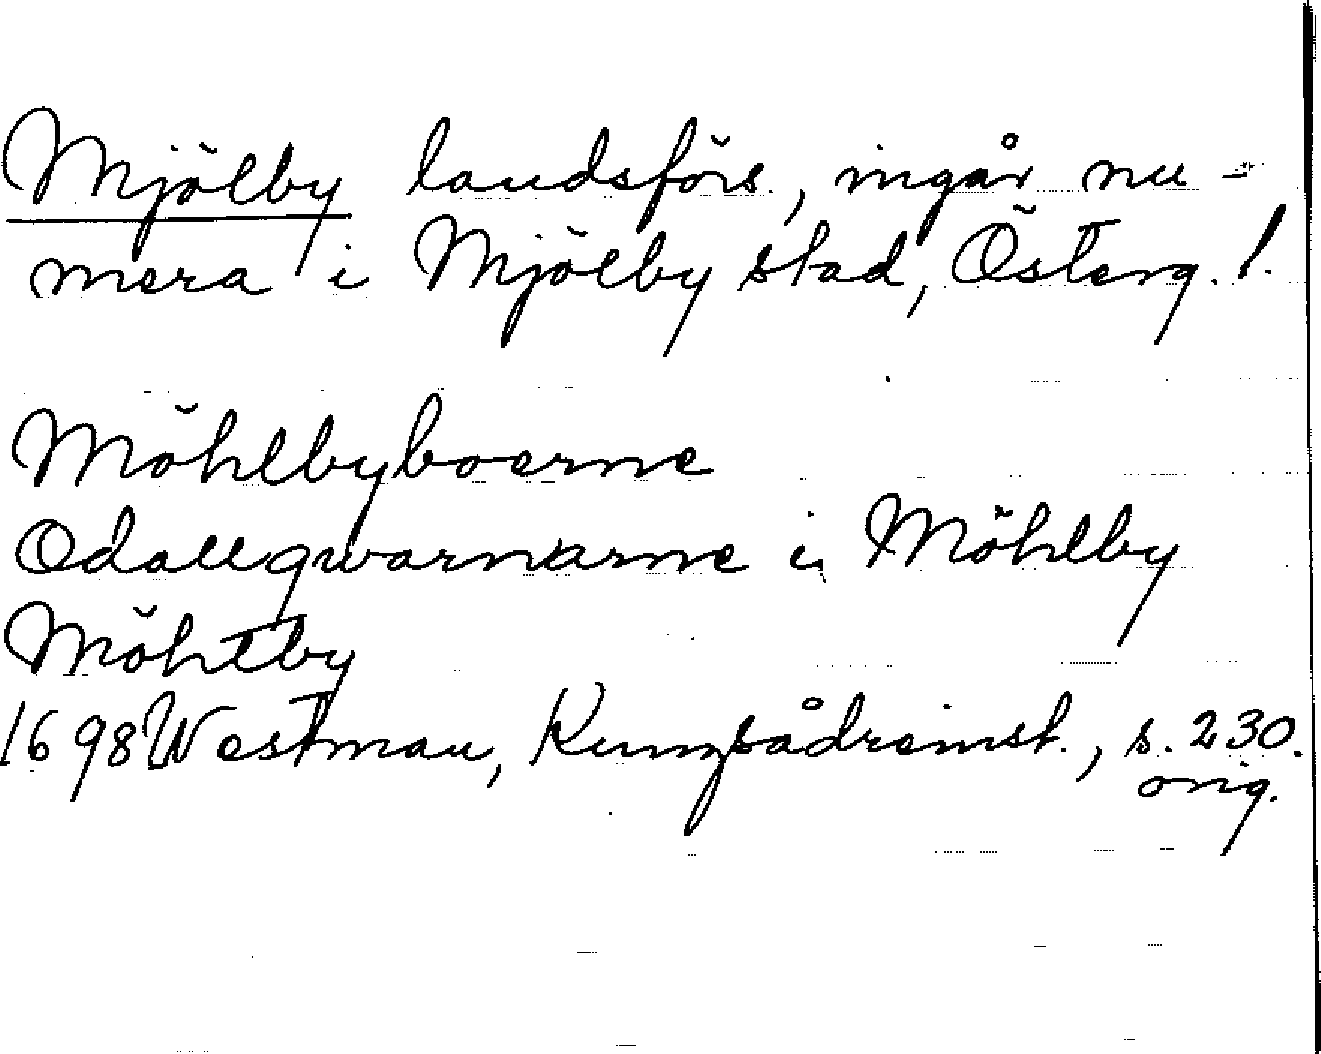 Mjölby landsförs., ingår nu-
mera i Mjölby stad, Österg. l.
Möhlbyboerne
Odallqwarnarne i Möhlby
Möhlby
1698 Westman, Kumsådreinst., s. 230.
orig.